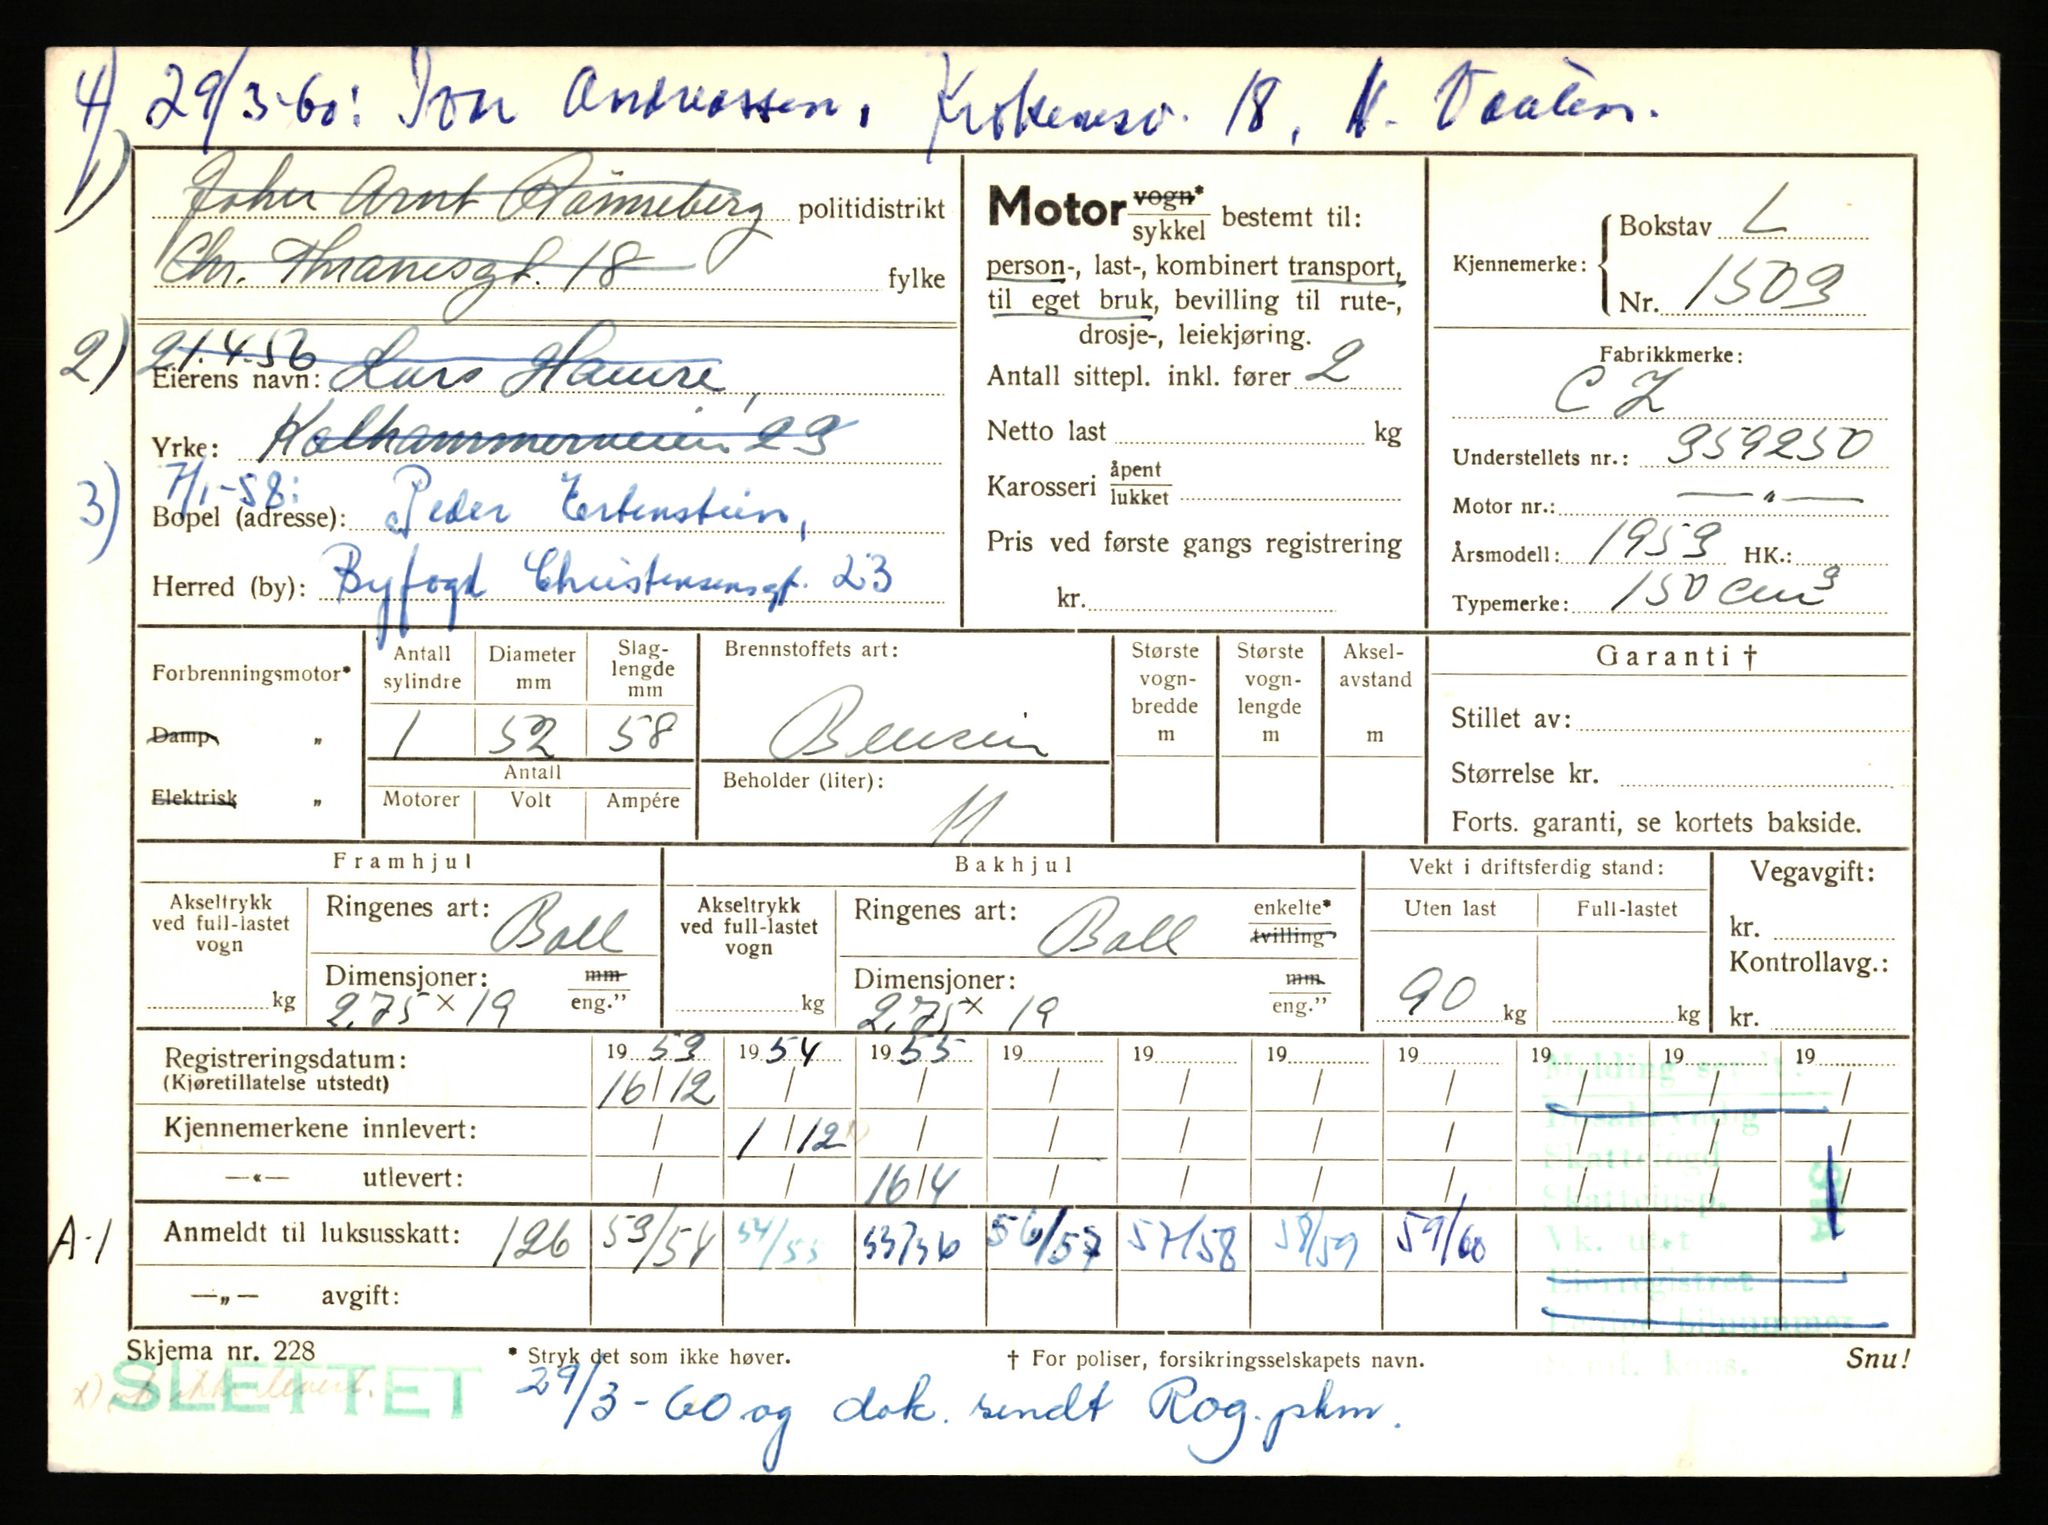 4) 29/3-60: Ivar Andreassen, 18,
1) Arnt Rönneberg politidistrikt
Chr. Thranesgt. 18 fylke
2) 21.4.56
Eierens navn: Lars Hamre,
Yrke: Kalhammerveien 23
3) 7/1-58:
Bopel (adresse): Peder Ertenstein,
Herred (by): Byfogd Christensensgt. 23
Motor vogn* sykkel bestemt til:
person-, last-, kombinert transport,
til eget bruk, bevilling til rute-,
drosje-, leiekjøring.
Antall sittepl. inkl. fører 2
Netto last kg
Karosseri åpent lukket
Pris ved første gangs registrering
kr.
Kjennemerke: Bokstav L
Nr. 1503
Fabrikkmerke:
CZ
Understellets nr.: 359250
Motor nr.: — " —
Årsmodell: 1953 HK.:
Typemerke: 150 cm³
Forbrenningsmotor*
Damp- "
Elektrisk "
Antall sylindre Diameter mm Slag-lengde mm
1 52 58
Antall
Motorer Volt Ampére
Brennstoffets art:
Bensin
Beholder (liter):
11
Største vogn-bredde m
Største vogn-lengde m
Aksel-avstand m
Garanti †
Stillet av:
Størrelse kr.
Forts. garanti, se kortets bakside.
Framhjul
Akseltrykk ved full-lastet vogn kg
Ringenes art: Ball
Dimensjoner: mm eng."
2,75 x 19
Bakhjul
Akseltrykk ved full-lastet vogn kg
Ringenes art: Ball enkelte* tvilling
Dimensjoner: mm eng."
2,75 x 19
Vekt i driftsferdig stand:
Uten last Full-lastet
90 kg kg
Vegavgift:
kr.
Kontrollavg.:
kr.
Registreringsdatum: 19 53 19 54 19 55 19 19 19 19 19 19 19
(Kjøretillatelse utstedt) 16/12 / / / / / / / / /
Kjennemerkene innlevert: / 1/12 x) / / / / / / / /
—«— utlevert: / / 16/4 / / / / / / /
A-1 Anmeldt til luksusskatt: 126 53/54 54/55 55/56 56/57 57/58 58/59 59/60
—„— avgift:
Melding sendt:
Skattefogd
Skatteinsp.
Vk. utst
Eierregistret
Skjema nr. 228 * Stryk det som ikke høver. † For poliser, forsikringsselskapets navn. Snu!
SLETTET
29/3-60 og dok. sendt Rog. pkm.